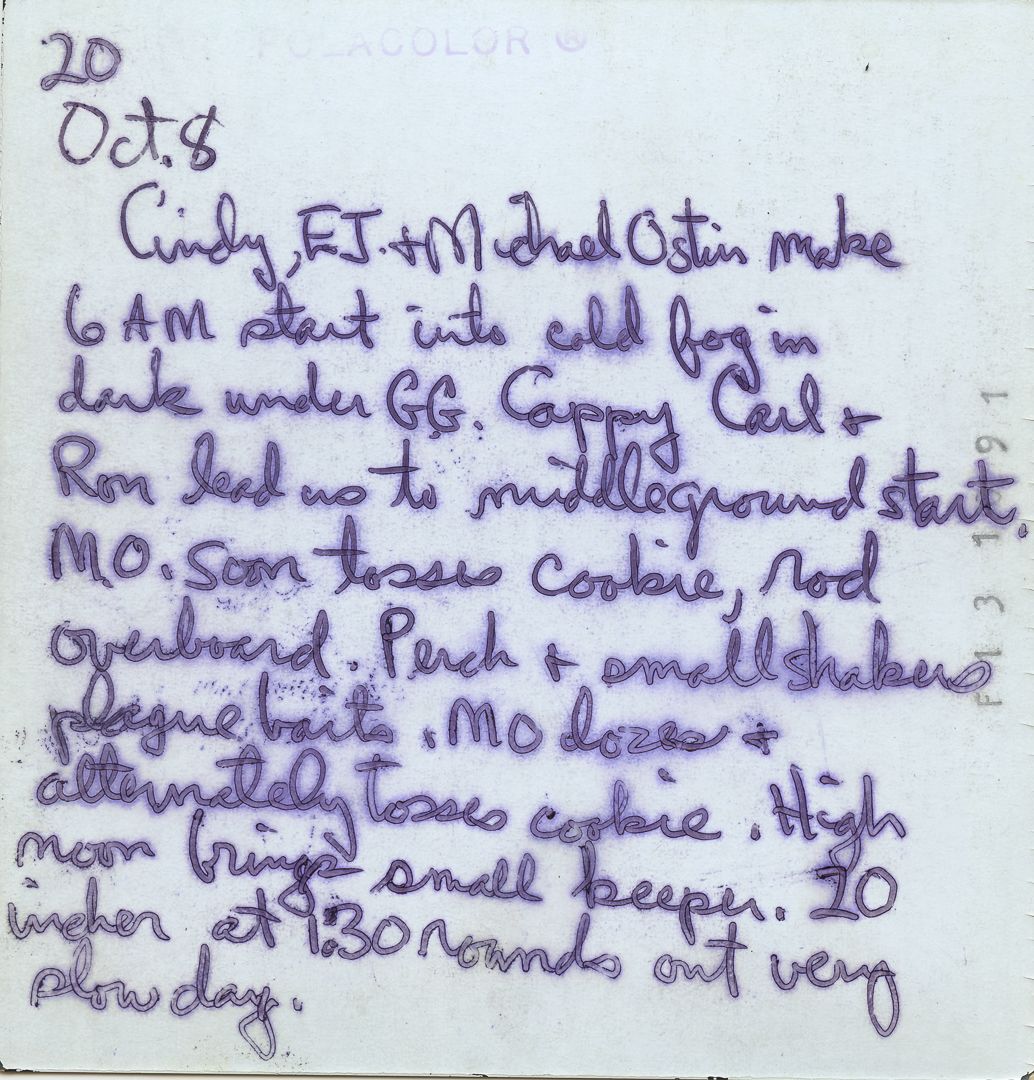 POLACOLOR ®
20
Oct. 8
Cindy, EJ. + Michael Ostin make
6 AM start into cold fog in
dark under GG. Cappy Carl +
Ron lead us to middleground start.
M.O. soon tosses cookie, rod
overboard. Perch + small shakers
plague baits. MO dozes +
alternately tosses cookie. High
noon brings small keeper. 20
incher at 1:30 rounds out very
slow day.